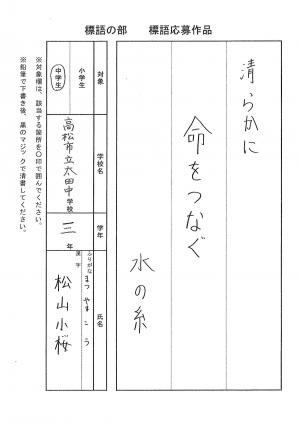 標語の部　標語応募作品
清らかに
命をつなぐ
水の糸
対象
小学生
中学生
学校名
高松市立太田中学校
学年
三年
氏名
ふりがな
まつやまこう
漢字
松山小桜
※対象欄は、該当する箇所を○印で囲んでください。
※鉛筆で下書き後、黒のマジックで清書してください。